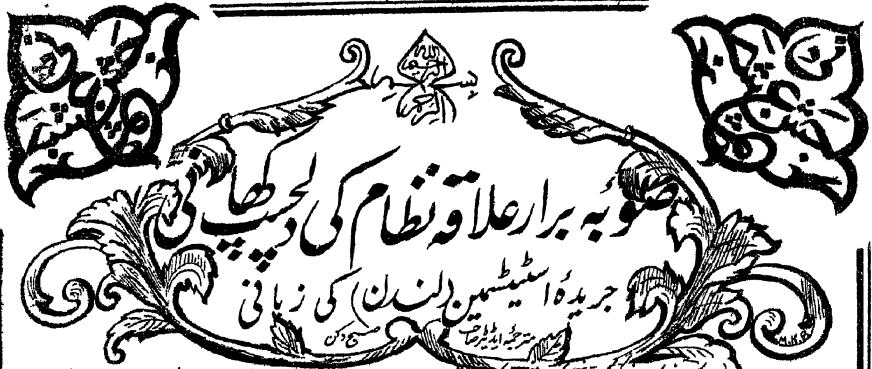 بسم اللہ الرحمن الرحیم
صوبۂ برار علاقہ نظام کی دلچسپ کھانی
جریدۂ اسٹیٹسمین (لندن) کی زبانی
مترجمۂ ایڈیٹر صاحب صبح دکن
M.K.B.